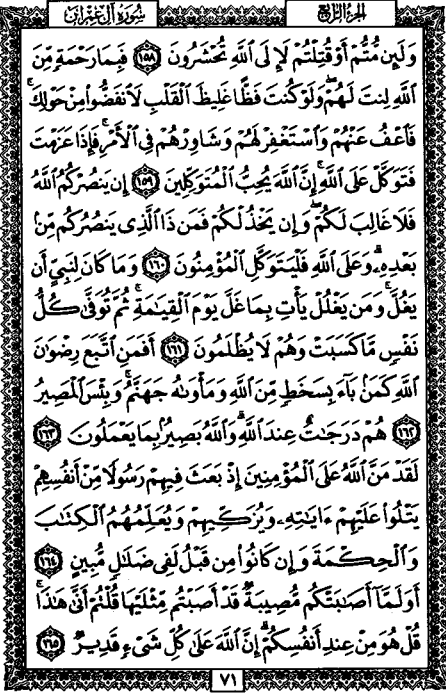 الجزء الرابع
سورة آل عمران
وَلَئِن مُّتُّمْ أَوْ قُتِلْتُمْ لَإِلَى ٱللَّهِ تُحْشَرُونَ ١٥٨ فَبِمَا رَحْمَةٍ مِّنَ
ٱللَّهِ لِنتَ لَهُمْ ۖ وَلَوْ كُنتَ فَظًّا غَلِيظَ ٱلْقَلْبِ لَٱنفَضُّوا۟ مِنْ حَوْلِكَ ۖ
فَٱعْفُ عَنْهُمْ وَٱسْتَغْفِرْ لَهُمْ وَشَاوِرْهُمْ فِى ٱلْأَمْرِ ۖ فَإِذَا عَزَمْتَ
فَتَوَكَّلْ عَلَى ٱللَّهِ ۚ إِنَّ ٱللَّهَ يُحِبُّ ٱلْمُتَوَكِّلِينَ ١٥٩ إِن يَنصُرْكُمُ ٱللَّهُ
فَلَا غَالِبَ لَكُمْ ۖ وَإِن يَخْذُلْكُمْ فَمَن ذَا ٱلَّذِى يَنصُرُكُم مِّنۢ
بَعْدِهِۦ ۗ وَعَلَى ٱللَّهِ فَلْيَتَوَكَّلِ ٱلْمُؤْمِنُونَ ١٦٠ وَمَا كَانَ لِنَبِىٍّ أَن
يَغُلَّ ۚ وَمَن يَغْلُلْ يَأْتِ بِمَا غَلَّ يَوْمَ ٱلْقِيَـٰمَةِ ۚ ثُمَّ تُوَفَّىٰ كُلُّ
نَفْسٍ مَّا كَسَبَتْ وَهُمْ لَا يُظْلَمُونَ ١٦١ أَفَمَنِ ٱتَّبَعَ رِضْوَٰنَ
ٱللَّهِ كَمَنۢ بَآءَ بِسَخَطٍ مِّنَ ٱللَّهِ وَمَأْوَىٰهُ جَهَنَّمُ ۚ وَبِئْسَ ٱلْمَصِيرُ
١٦٢ هُمْ دَرَجَـٰتٌ عِندَ ٱللَّهِ ۗ وَٱللَّهُ بَصِيرٌۢ بِمَا يَعْمَلُونَ ١٦٣
لَقَدْ مَنَّ ٱللَّهُ عَلَى ٱلْمُؤْمِنِينَ إِذْ بَعَثَ فِيهِمْ رَسُولًا مِّنْ أَنفُسِهِمْ
يَتْلُوا۟ عَلَيْهِمْ ءَايَـٰتِهِۦ وَيُزَكِّيهِمْ وَيُعَلِّمُهُمُ ٱلْكِتَـٰبَ
وَٱلْحِكْمَةَ وَإِن كَانُوا۟ مِن قَبْلُ لَفِى ضَلَـٰلٍ مُّبِينٍ ١٦٤
أَوَلَمَّآ أَصَـٰبَتْكُم مُّصِيبَةٌ قَدْ أَصَبْتُم مِّثْلَيْهَا قُلْتُمْ أَنَّىٰ هَـٰذَا ۖ
قُلْ هُوَ مِنْ عِندِ أَنفُسِكُمْ ۗ إِنَّ ٱللَّهَ عَلَىٰ كُلِّ شَىْءٍ قَدِيرٌ ١٦٥
٧١